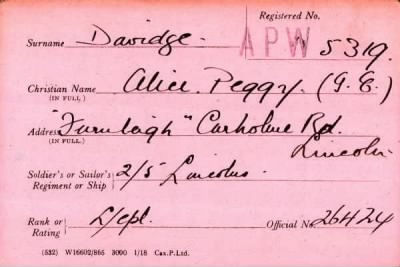 Registered No.
Surname Davidge. APW 5319.
Christian Name Alice Peggy. (G.E.)
(IN FULL)
Address "Furnleigh" Carholme Rd.
(IN FULL.) Lincoln
Soldier's or Sailor's 2/5 Lincolns.
Regiment or Ship
Rank or L/cpl. Official No. 26424
Rating
(532) W16602/865 3000 1/18 Cax.P.Ltd.